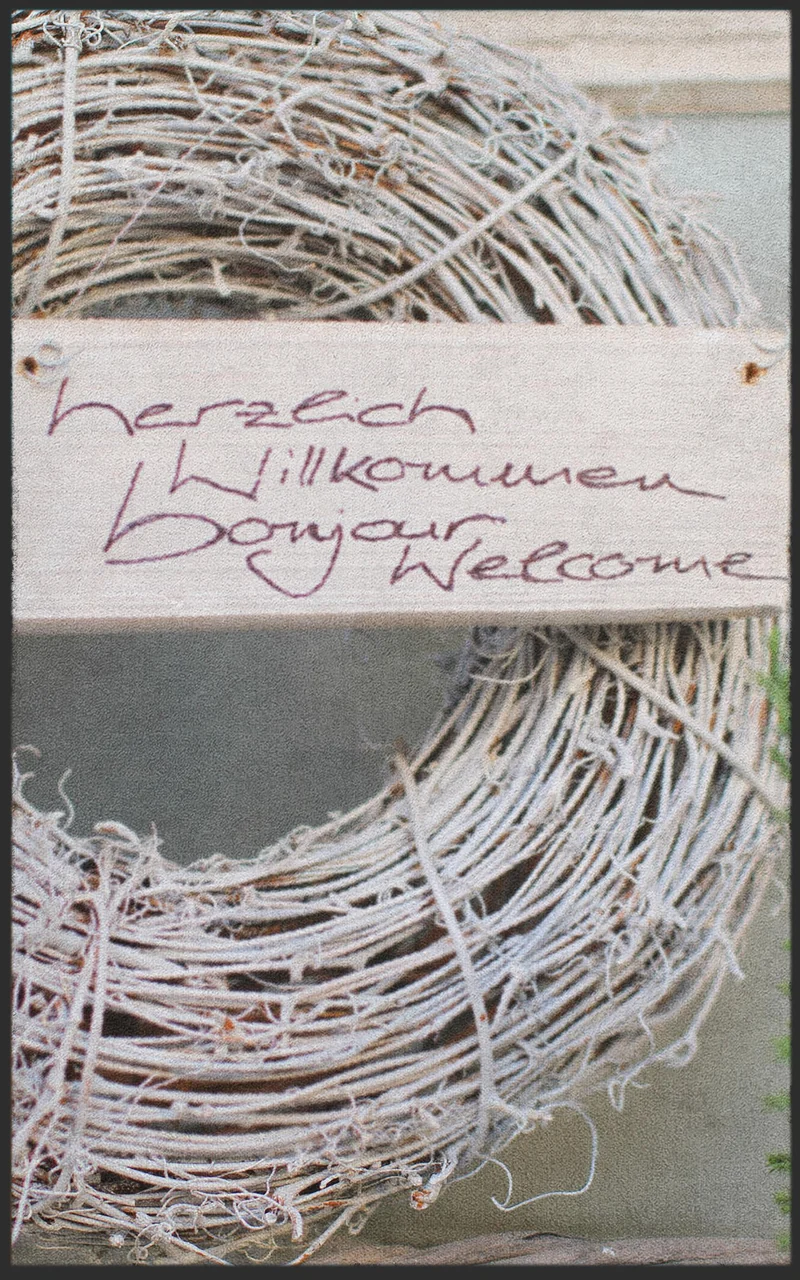 herzlich
Willkommen
bonjour
Welcome